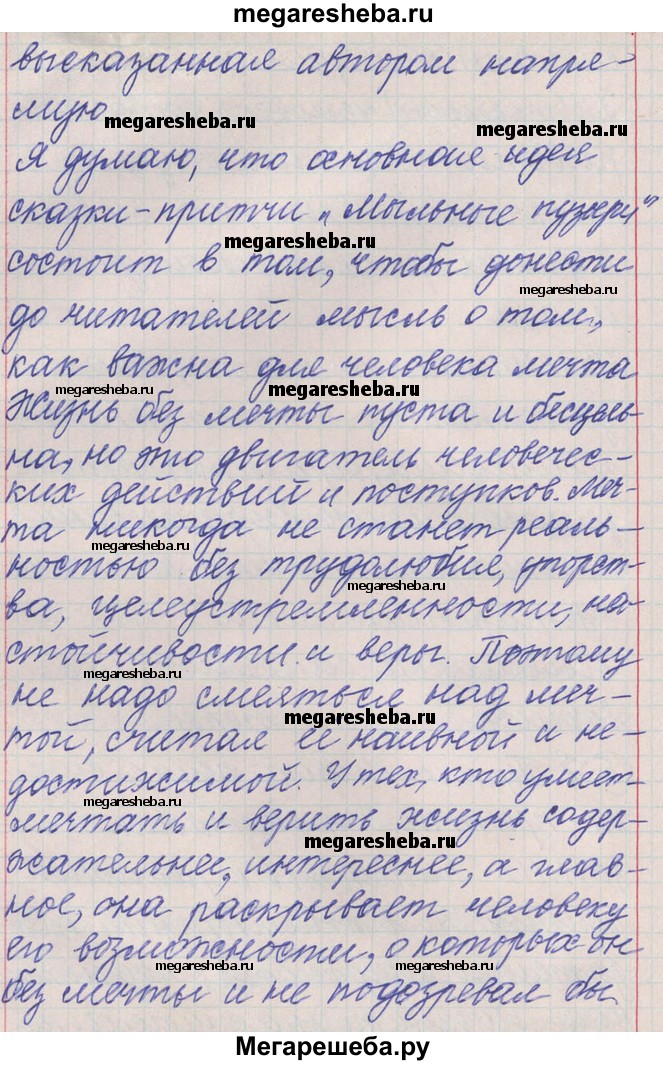 megaresheba.ru
высказанная автором напря-
мую
megaresheba.ru
megaresheba.ru
Я думаю, что основная идея
сказки-притчи „Мыльные пузыри"
megaresheba.ru
состоит в том, чтобы донести
megaresheba.ru
до читателей мысль о том,
как важна для человека мечта
megaresheba.ru
megaresheba.ru
Жизнь без мечты пуста и бесцель-
на, но это двигатель человечес-
ких действий и поступков. Меч-
та никогда не станет реаль-
megaresheba.ru
ностью без трудолюбия, упорст-
megaresheba.ru
ва, целеустремленности, на-
стойчивости и веры. Поэтому
megaresheba.ru
не надо смеяться над меч-
megaresheba.ru
той, считая ее наивной и не-
достижимой. У тех, кто умеет
megaresheba.ru
мечтать и верить жизнь содер-
megaresheba.ru
жательнее, интереснее, а глав-
ное, она раскрывает человеку
его возможности, о которых он
megaresheba.ru
megaresheba.ru
без мечты и не подозревал бы
Мегарешеба.ру